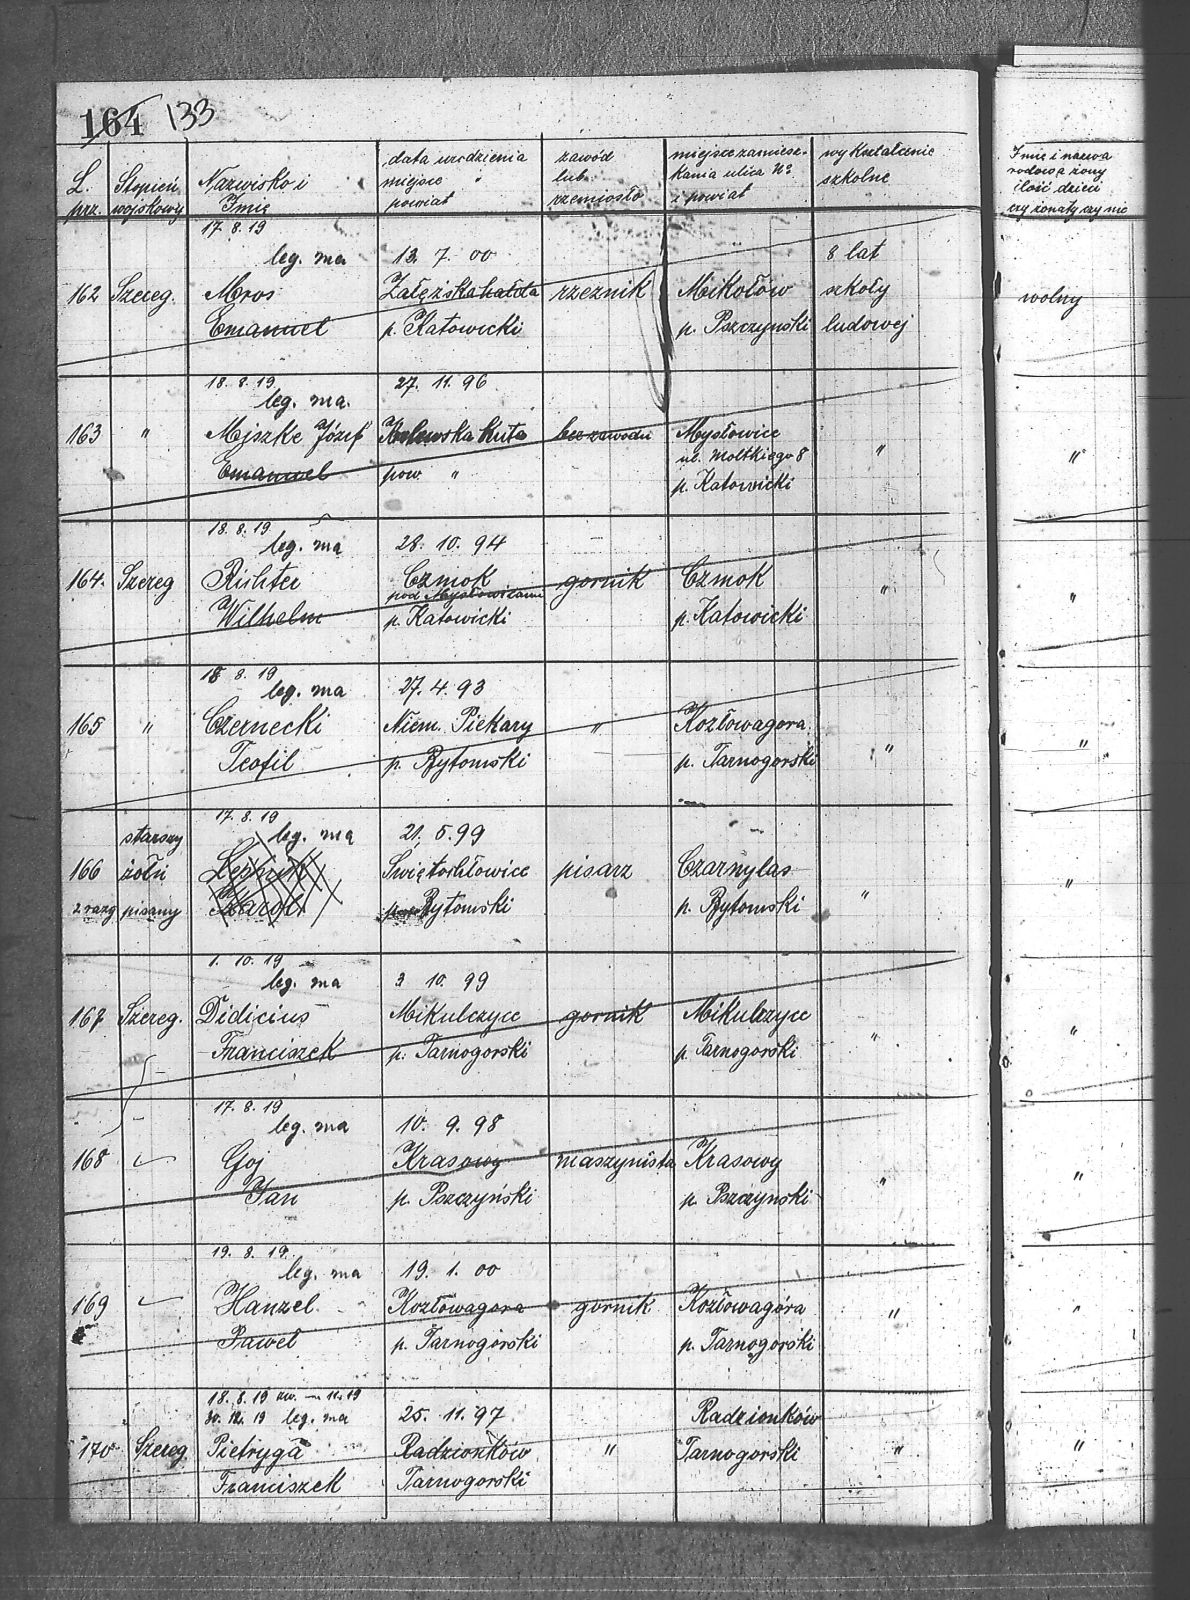 164 133
L. prz. Stopień wojskowy Nazwisko i Imię data urodzienia miejsce powiat zawód lub rzemiosło miejsce zamiesz- kania ulica No i powiat wykształcenie szkolne Imię i nazwa rodowa żony ilość dzieci czy żonaty czy nie
17. 8. 19
leg. ma 12. 7. 00 8 lat
162 Szereg. Mros Załęzska hałda rzeznik Mikołów szkoły wolny
Emanuel p. Katowicki p. Pszczynski ludowej
18. 8. 19 27. 11. 96
leg. ma.
163 " Mejszke Józef huta bez zawodu Mysłowice " "
Emanuel pow. " ul. Moltkiego 8
p. Katowicki
18. 8. 19
leg. ma 28. 10. 94
164. Szereg Richter Czmok gornik Czmok " "
pod Mysłowicami
Wilhelm p. Katowicki p. Katowicki
18 8. 19
leg. ma 27. 4. 93
165 " Czernecki Niem. Piekary " Kozłowagora " "
Teofil p. Bytomski p. Tarnogorski
17. 8. 19
starszy leg. ma 21. 5. 99
166 żołn Świętochłowice pisarz Czarnylas " "
2 razy pisany Karol Bytomski p. Bytomski
1. 10. 19
leg. ma 3 10. 99
167 Szereg. Didicius Mikulczyce gornik Mikulczyce " "
Franciszek p. Tarnogorski p. Tarnogorski
17. 8. 19
leg. ma 10. 9. 98
168 " Goj Krasowy maszynista Krasowy " "
Jan p. Pszczyński p. Pszczynski
19. 8. 19.
leg. ma 19. 1. 00
169 " Hanzel Kozłowagora gornik Kozłowagóra " "
Paweł p. Tarnogórski p. Tarnogórski
18. 8. 19 zw. 11. 19
30. 12. 19 leg. ma 25. 11. 97 Radzionków
170 Szereg. Pietryga Radzionków " Tarnogorski " "
Franciszek Tarnogorski